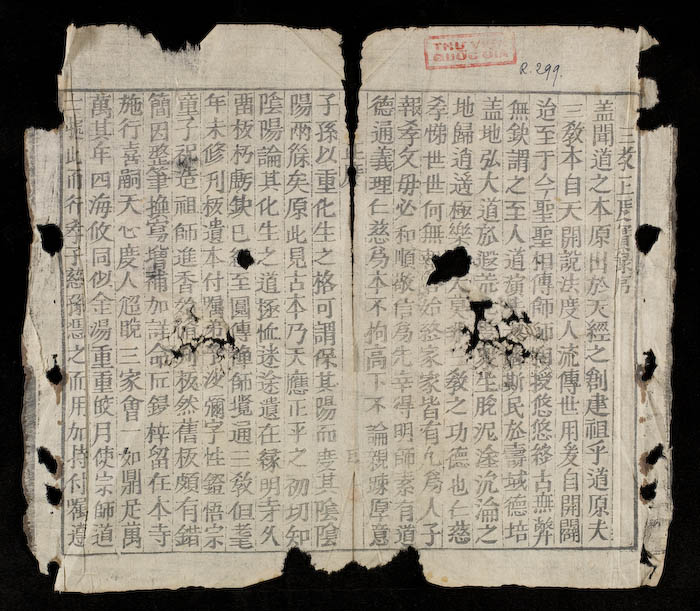 THƯ VIỆN
QUỐC GIA
R.299.
三教正度實錄序
盖聞道之本原出於天經之創建祖乎道原夫
三教本自天開說法度人流傳世用爰自開闢
治至于今聖聖相傳師師相授悠悠終古無斁
無欽謂之至人道演斯民於壽城德培
盖地弘大道於遐荒生脫泥淦沉淪之
地歸道遥極樂天莫教之功德也仁慈
孝悌世世何無始終家家皆有凢爲人子
報孝父毋必和順敬信爲先幸得明師素有道
德通義理仁慈爲本不拘高下不論親踈原意
子孫以重化生之格可謂保其陽而度其陰陰
陽兩縁矣原此見古本乃天應正平之初切知
陰陽論其化生之道極恤迷途遺在縁明寺久
板朽虧欽已後至圓傳禪師覽通三教但耄
年未修刊板遺本付囑弟沙彌字性鐙悟宗
童子祝造祖師進香板然舊板頗有錯
簡因整筆換寫增補加詳命匠鋟梓留在本寺
施行喜嗣天心度人迢脫三家會 如鼎足萬
萬其年四海攸同似金湯重重皎月使宗師道
士據此而行孝子慈孫憑之而用加持付囑遵